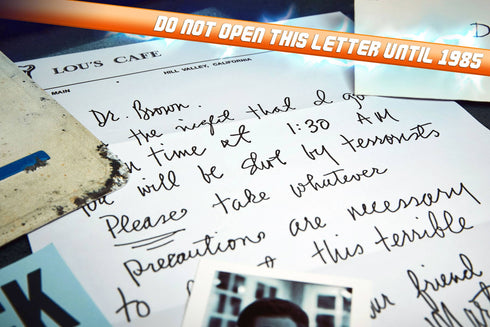 DO NOT OPEN THIS LETTER UNTIL 1985
LOU'S CAFE
MAIN
HILL VALLEY, CALIFORNIA
D
Dr. Brown.
the night that I go
in time at 1:30 AM
you will be shot by terrorists
Please take whatever
precautions are necessary
to this terrible
ur friend
CK